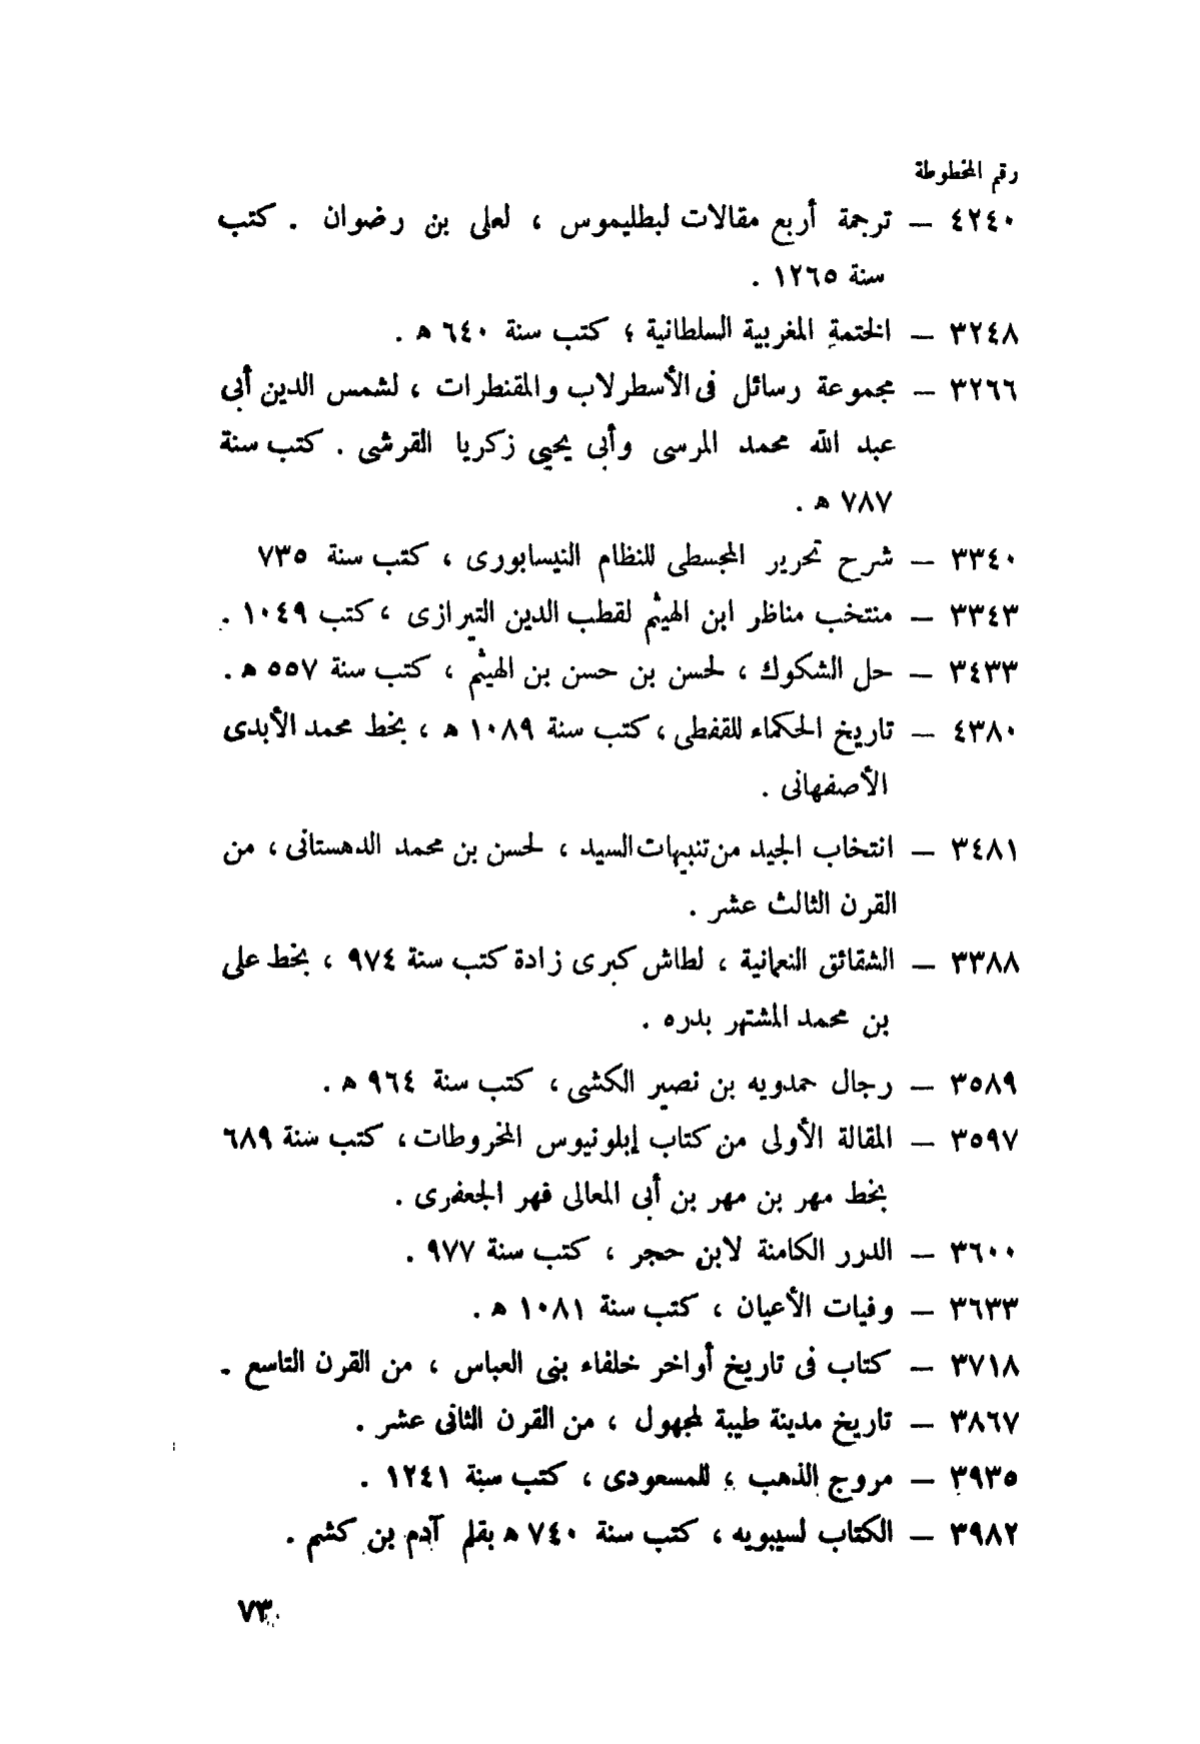 رقم المخطوطة
٤٢٤٠ — ترجمة أربع مقالات لبطليموس ، لعلى بن رضوان . كتب
سنة ١٢٦٥ .
٣٢٤٨ — الختمة المغربية السلطانية ؛ كتب سنة ٦٤٠ ه .
٣٢٦٦ — مجموعة رسائل فى الأسطرلاب والمقنطرات ، لشمس الدين أبى
عبد الله محمد المرسى وأبى يحيى زكريا القرشى . كتب سنة
٧٨٧ ه .
٣٣٤٠ — شرح تحرير المجسطى للنظام النيسابورى ، كتب سنة ٧٣٥
٣٣٤٣ — منتخب مناظر ابن الهيثم لقطب الدين التبرازى ، كتب ١٠٤٩ .
٣٤٣٣ — حل الشكوك ، لحسن بن حسن بن الهيثم ، كتب سنة ٥٥٧ ه .
٤٣٨٠ — تاريخ الحكماء للقفطى ، كتب سنة ١٠٨٩ ه ، بخط محمد الأبدى
الأصفهانى .
٣٤٨١ — انتخاب الجيد من تنبيهات السيد ، لحسن بن محمد الدهستانى ، من
القرن الثالث عشر .
٣٣٨٨ — الشقائق النعمانية ، لطاش كبرى زادة كتب سنة ٩٧٤ ، بخط على
بن محمد المشتهر بدره .
٣٥٨٩ — رجال حمدويه بن نصير الكشى ، كتب سنة ٩٦٤ ه .
٣٥٩٧ — المقالة الأولى من كتاب إبلونيوس المخروطات ، كتب سنة ٦٨٩
بخط مهر بن مهر بن أبى المعالى فهر الجعفرى .
٣٦٠٠ — الدرر الكامنة لابن حجر ، كتب سنة ٩٧٧ .
٣٦٣٣ — وفيات الأعيان ، كتب سنة ١٠٨١ ه .
٣٧١٨ — كتاب فى تاريخ أواخر خلفاء بنى العباس ، من القرن التاسع .
٣٨٦٧ — تاريخ مدينة طيبة لمجهول ، من القرن الثانى عشر .
٣٩٣٥ — مروج الذهب ، للمسعودى ، كتب سنة ١٢٤١ .
٣٩٨٢ — الكتاب لسيبويه ، كتب سنة ٧٤٠ ه بقلم آدم بن كشم .
٧٣